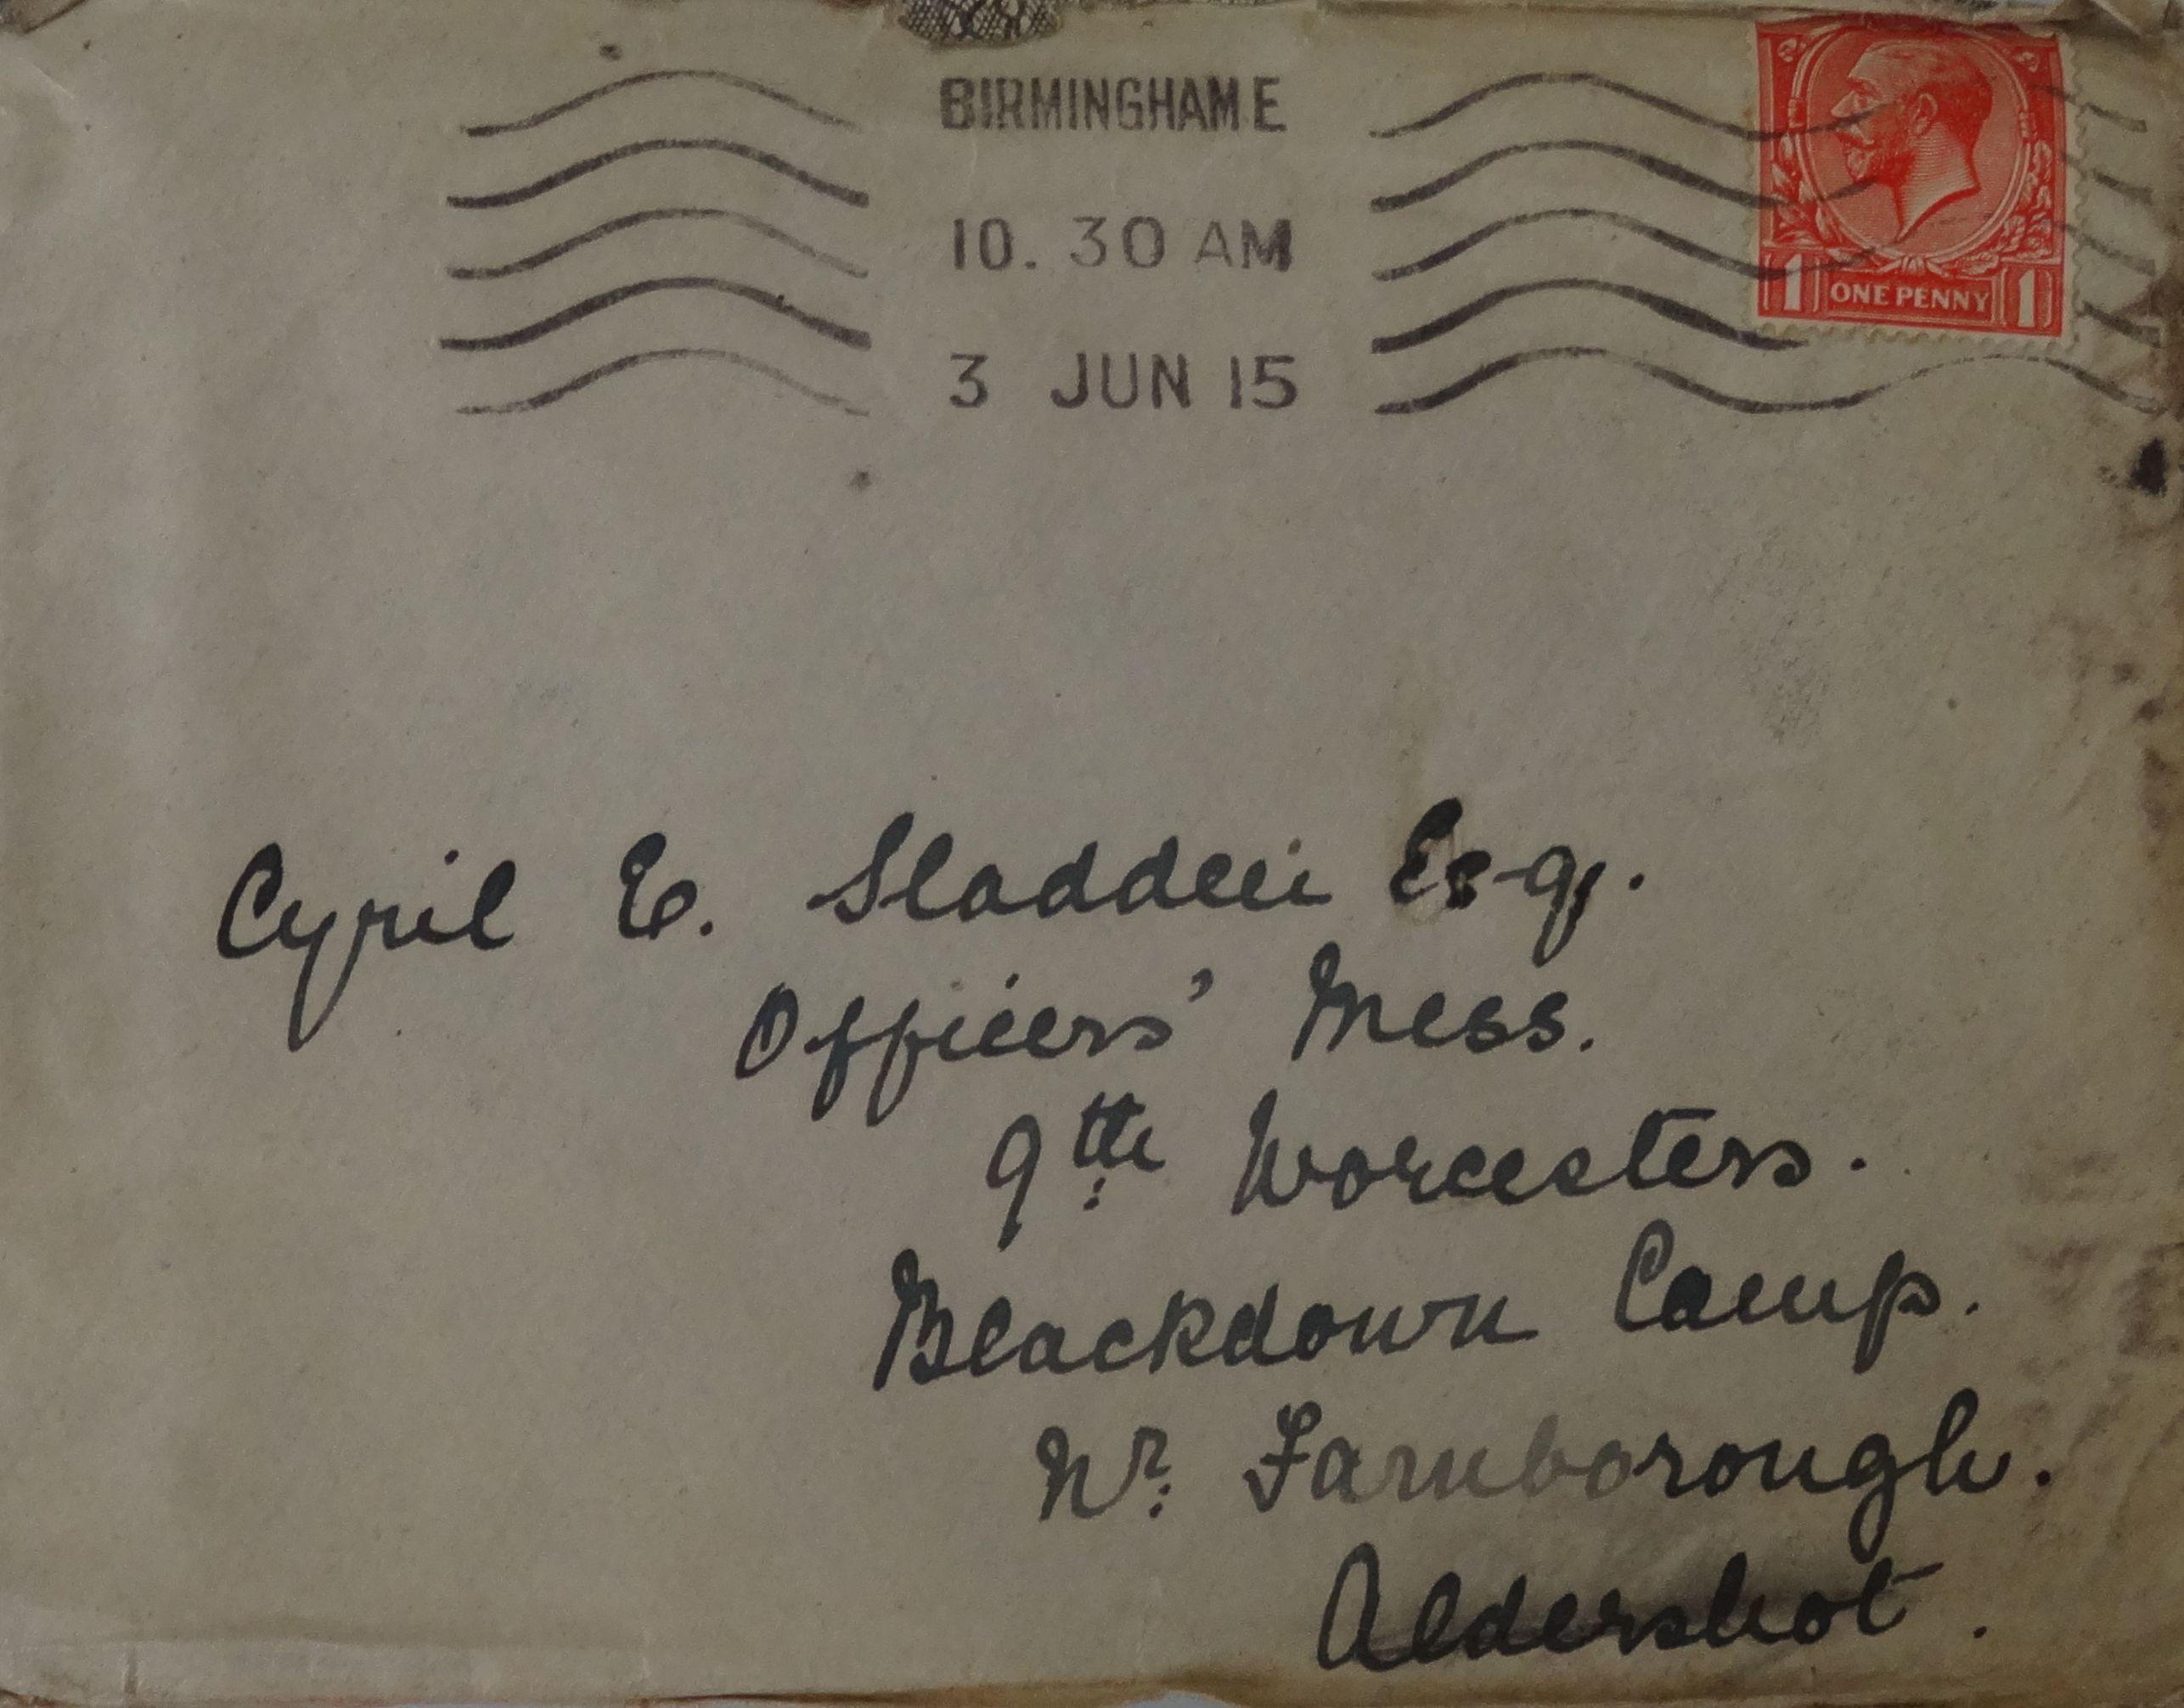 BIRMINGHAM E
10. 30 AM
3 JUN 15
1 ONE PENNY 1
Cyril E. Sladden Esq.
Officers' Mess.
9th Worcesters.
Blackdown Camp.
Nr. Farnborough.
Aldershot.